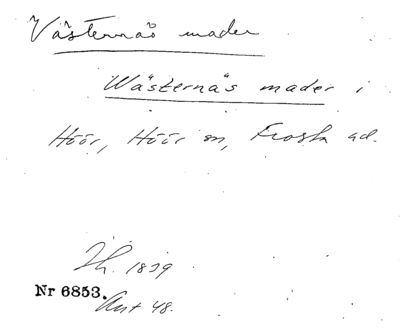 Västernäs mader
Wästernäs mader i
Höör, Höör sn, Frosta hd.
Th. 1839
Nr 6853.
Ant 48.